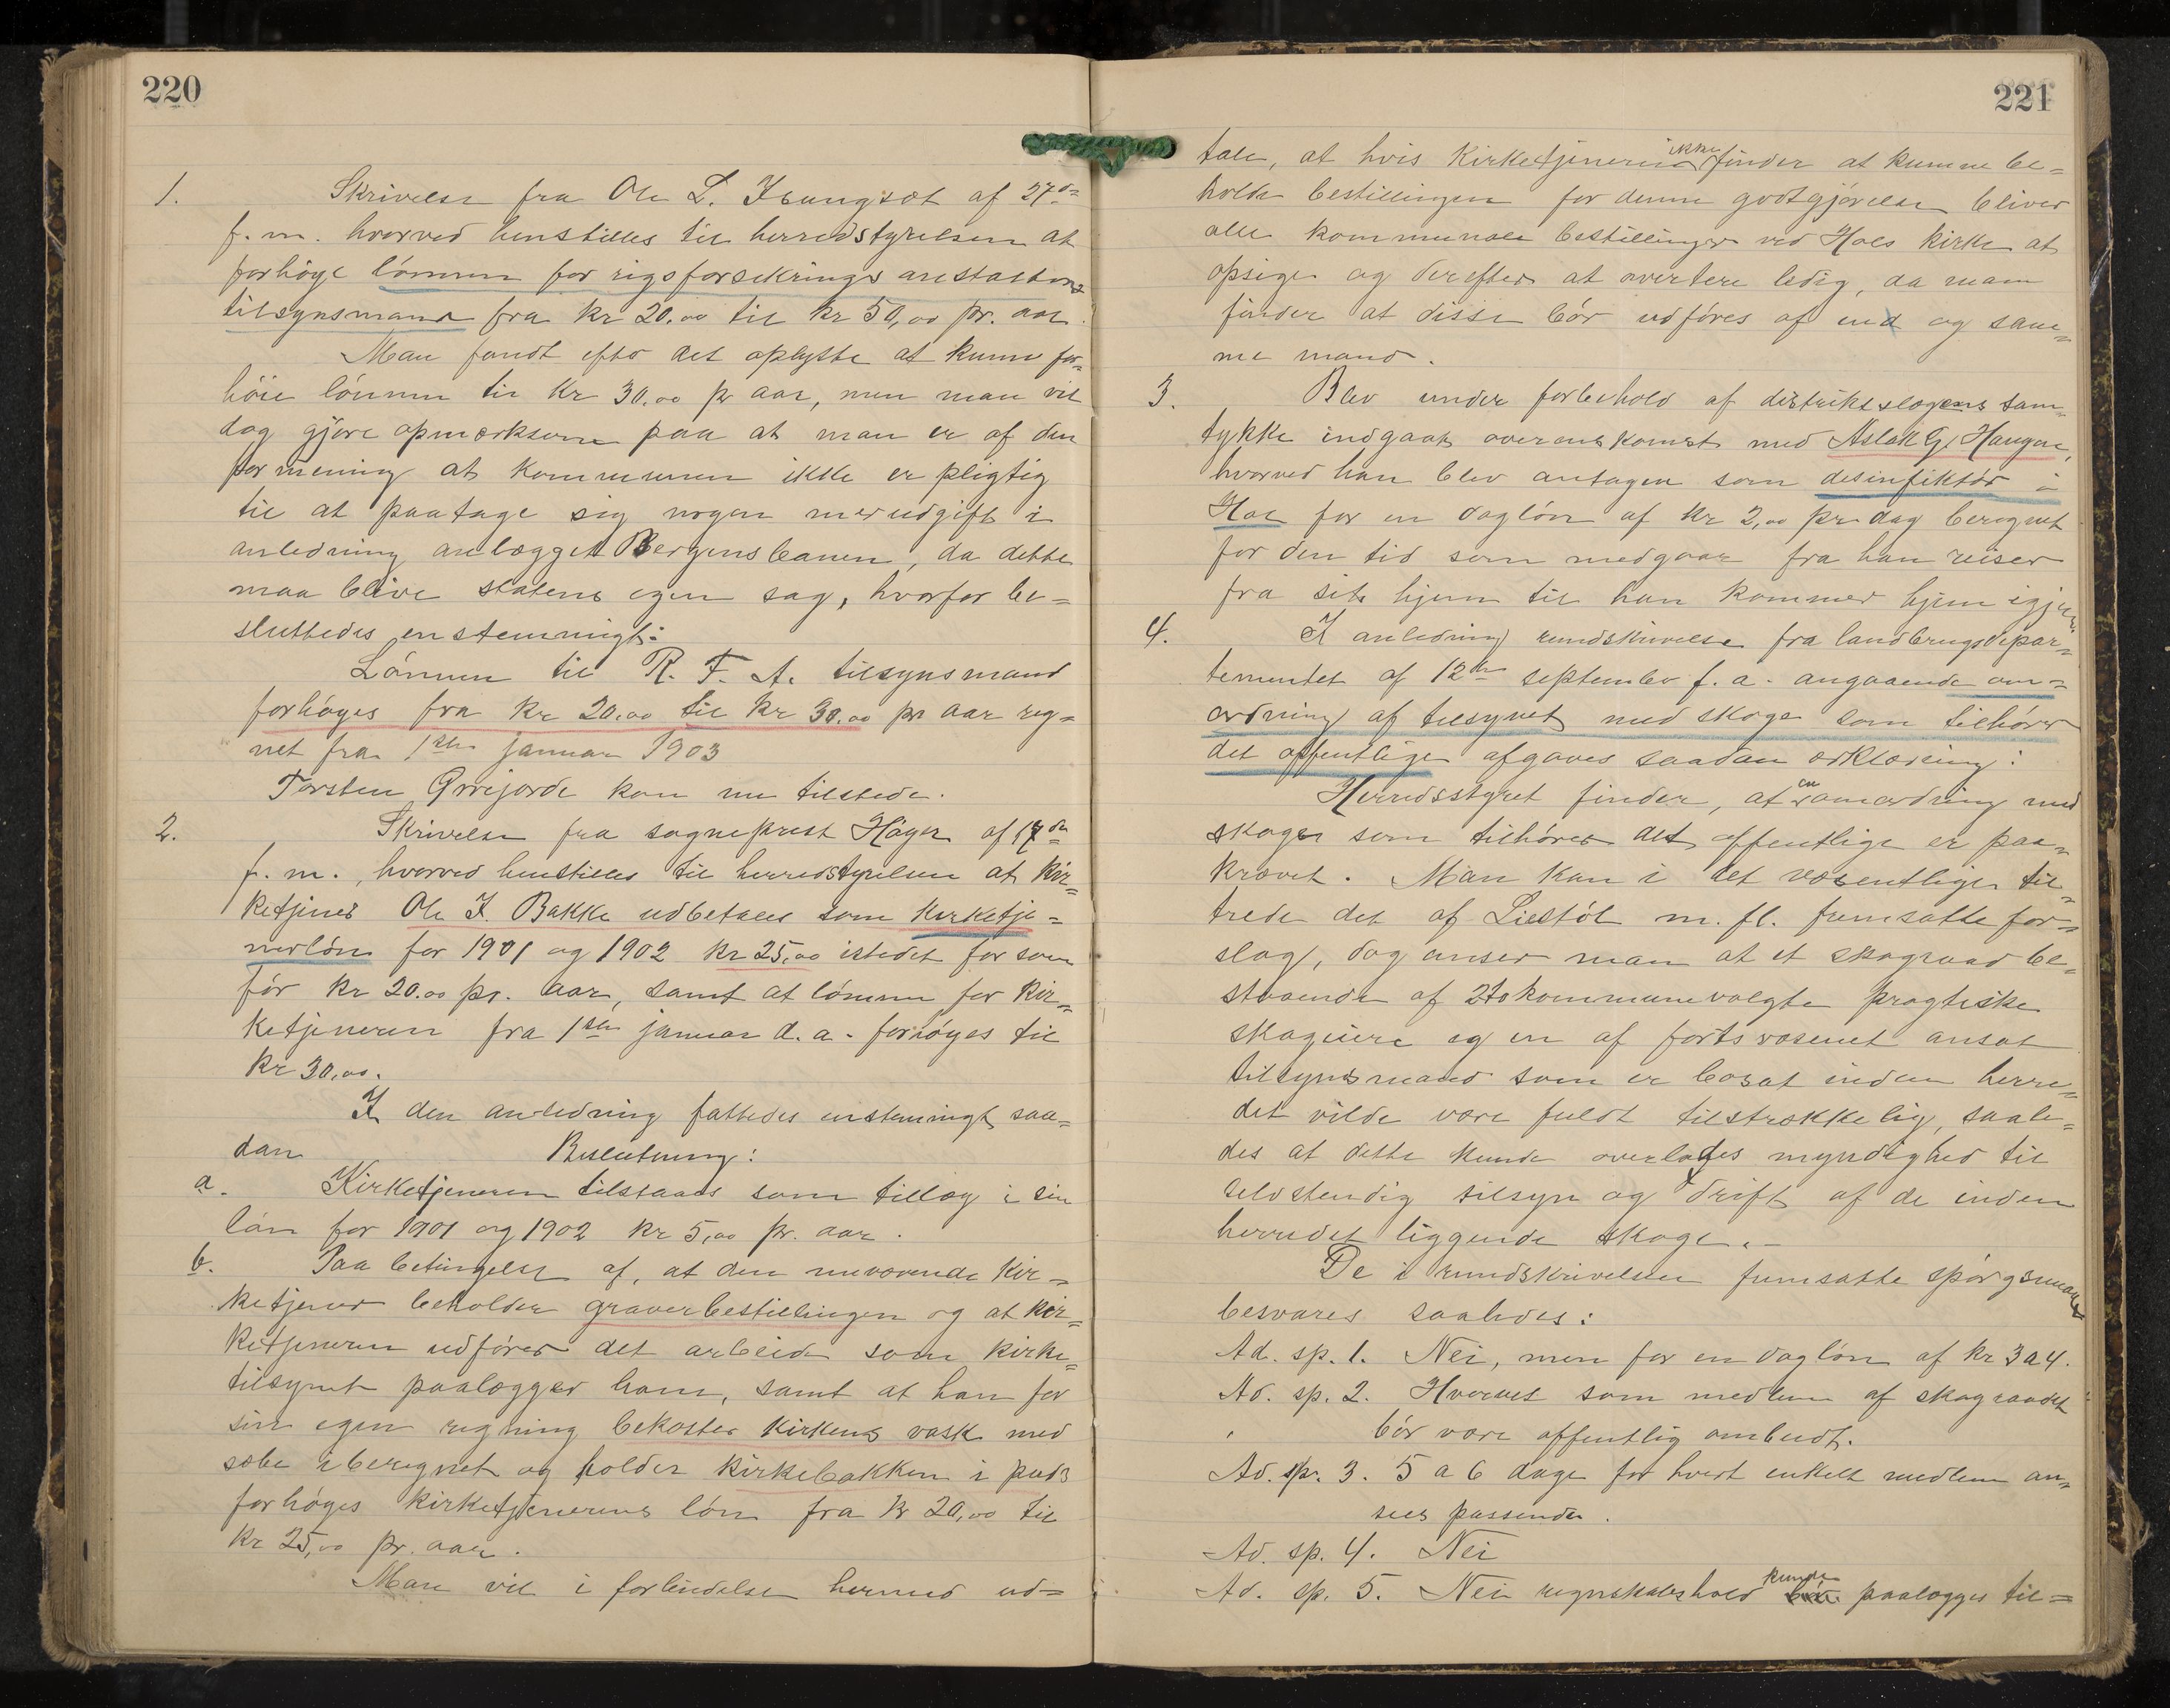 220
1. Skrivelse fra Ole L. Isungset af 27de
f. m. hvorved henstilles til herredstyrelsen at
forhöge lönnen for rigsforsekrings anstaltens
tilsynsmand fra kr 20.00 til kr 50,00 pr. aar.
Man fandt efter det oplyste at kunne for=
höie lönnen til kr 30.00 pr aar, men man vil
dog gjöre opmerksom paa at man er af den
formening at kommunen ikke er pligtig
til at paatage sig nogen merudgift i
anledning anlægget Bergensbanen, da dette
maa blive statens egen sag, hvorfor be=
sluttedes enstemmigt:
Lönnen til R. F. A. tilsynsmand
forhöges fra kr 20.00 til kr 30.00 pr aar reg=
net fra 1ste januar 1903
Torsten Grrejorde kom nu tilstede.
2. Skrivelse fra sogneprest Höyer af 17de
f. m., hvorved henstilles til herredstyrelsen at kir=
ketjener Ole I. Bakke udbetales som kirketje=
nerlön for 1901 og 1902 kr 25.00 istedet for som
för kr 20.00 pr. aar, samt at lönnen for kir=
ketjeneren fra 1ste januar d. a. forhöyes til
kr 30,00.
I den anledning fattedes enstemmigt saa=
dan Beslutning:
a. Kirketjeneren tilstaaes som tillæg i sin
lön for 1901 og 1902 kr 5,00 pr. aar.
b. Paa betingelse af, at den nuværende kir=
ketjener beholder graverbestillingen og at kir=
ketjeneren udförer det arbeide som kirke=
tilsynet paalægger ham, samt at han for
sin egen regning bekoster kirkens vask med
sæbe iberegnet og holder kirkebakken i puds
forhöges kirketjenerens lön fra kr 20,00 til
kr 25,00 pr. aar.
Man vil i forbindelse hermed ud=
221
tale, at hvis kirketjeneren ikke finder at kunne be=
holde bestillingen for denne godtgjörelse bliver
alle kommunale bestillinger ved Hols kirke at
opsige og derefter at avertere ledig, da man
finder at disse bör udföres af end og sam=
me mand.
3. Blev under forbehold af distriktslægens sam=
tykke indgaat overenskomst med Aslak G. Haugen,
hvorved han blev antagen som desinfektör i
Hol for en daglön af kr 2,00 pr dag beregnet
for den tid som medgaar fra han reiser
fra sit hjem til han kommer hjem igjen.
4. I anledning rundskrivelse fra landbrugsdepar=
tementet af 12te september f. a. angaaende om=
ordning af tilsynet med skoge som tilhörer
det offentlige afgaves saadan erklæring:
Herredsstyret finder, at en omordning med
skoge som tilhörer det offentlige er paa=
krævet. Man kan i det væsentlige til=
træde det af Liestöl m. fl. fremsatte for=
slag, dog anser man at et skograad be=
staaende af 2 to kommunevalgte pragtiske
skogeiere og en af forstvæsenet ansat
tilsynsmand som er bosat inden herre=
det vilde være fuldt tilstrækkelig, saale=
des at dette kunde overlades myndighed til
selvstendig tilsyn og drift af de inden
herredet liggende skoge.-
De i rundskrivelsen fremsatte spörgsmaal
besvares saaledes:
Ad. sp. 1. Nei, men for en daglön af kr 3 a 4.
Ad. sp. 2. Hvervet som medlem af skograadet
bör være offentlig ombudt.
Ad. sp. 3. 5 a 6 dage for hvert enkelt medlem an=
sees passende.
Ad. sp. 4. Nei
Ad. sp. 5. Nei regnskabshold kunde paalægges til=